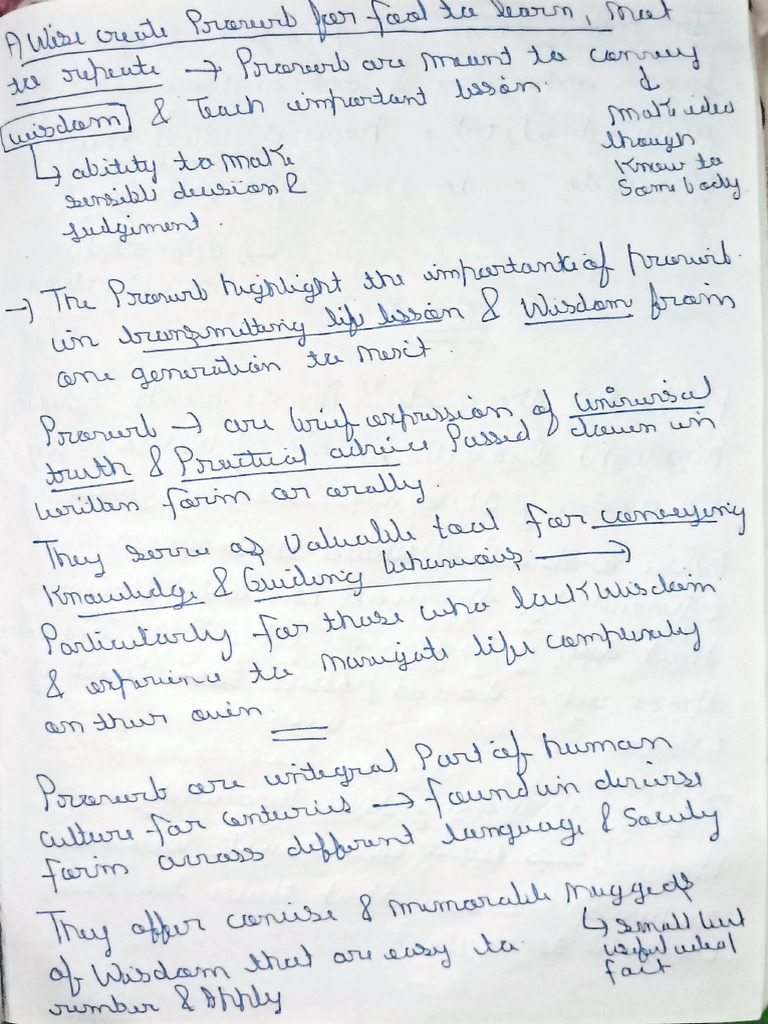 A Wise create Proverb for fool to learn, not
to repeate → Proverb are meant to convey
wisdom & Teach important lesson.
↳ ability to make
sensible decision &
judgiment.
↓
make idea
though
know to
Somebody
→ The Proverb highlight the importance of proverb
in transmitting life lesson & Wisdom from
one generation to next.
Proverb → are brief expression of universal
truth & Practical advice Passed down in
written form or orally.
They serve as valuable tool for conveying
Knowledge & Guiding behaviours →
Particularly for those who lack wisdom
& experience to navigate life complexely
on their own
Proverb are integral Part of human
culture for centuries → found in diverse
form across different language & Society
They offer concise & memorable nuggeds
of Wisdom that are easy to
rember & Apply
↳ small but
useful idea/
fact